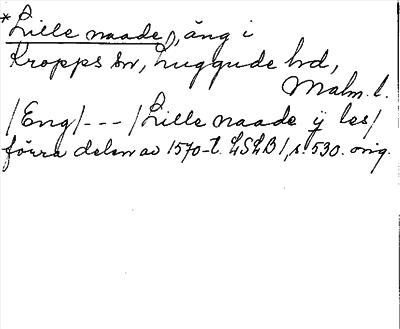 *Lille naade), äng i
Kropps sn, Luggude hd,
Malm. l.
/Eng/--- /Lille naade ÿ les/
förra delen av 1570-t. LSLB1, s. 530. orig.